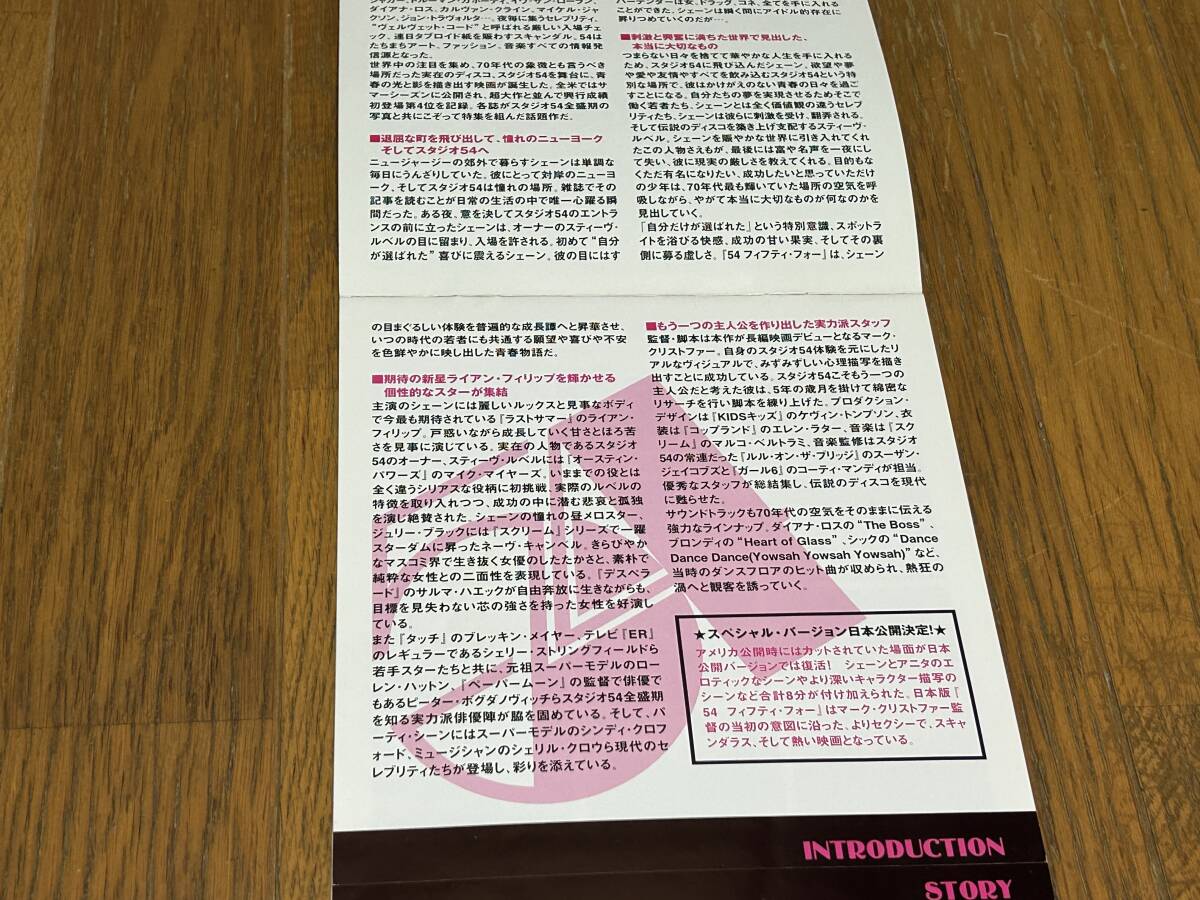 ジャガー、トルーマン・カポーティ、イヴ・サン・ローラン、
ダイアナ・ロス、カルヴァン・クライン、マイケル・ジャ
クソン、ジョン・トラヴォルタ…。夜毎に集うセレブリティ、
“ヴェルヴェット・コード”と呼ばれる厳しい入場チェ
ック、連日タブロイド紙を賑わすスキャンダル。54は
たちまちアート、ファッション、音楽すべての情報発
信源となった。
世界中の注目を集め、70年代の象徴とも言うべき
場所だった実在のディスコ、スタジオ54を舞台に、青
春の光と影を描き出す映画が誕生した。全米ではサ
マーシーズンに公開され、超大作と並んで興行成績
初登場第4位を記録。各誌がスタジオ54全盛期の
写真と共にこぞって特集を組んだ話題作だ。
■退屈な町を飛び出して、憧れのニューヨーク
そしてスタジオ54へ
ニュージャージーの郊外で暮らすシェーンは単調な
毎日にうんざりしていた。彼にとって対岸のニューヨ
ーク、そしてスタジオ54は憧れの場所。雑誌でその
記事を読むことが日常の生活の中で唯一心躍る瞬
間だった。ある夜、意を決してスタジオ54のエントラ
ンスの前に立ったシェーンは、オーナーのスティーヴ・
ルベルの目に留まり、入場を許される。初めて“自分
が選ばれた”喜びに震えるシェーン。彼の目にはす
バーテンダーは女、ドラッグ、コネ、全てを手に入れる
ことができた。シェーンは瞬く間にアイドル的存在に
昇りつめていくのだが…。
■刺激と興奮に満ちた世界で見出した、
本当に大切なもの
つまらない日々を捨てて華やかな人生を手に入れる
ため、スタジオ54に飛び込んだシェーン。欲望や夢
や愛や友情やすべてを飲み込むスタジオ54という特
別な場所で、彼はかけがえのない青春の日々を過ご
すことになる。自分たちの夢を実現させるためそこで
働く若者たち、シェーンとは全く価値観の違うセレブ
リティたち、シェーンは彼らに刺激を受け、翻弄される。
そして伝説のディスコを築き上げ支配するスティーヴ・
ルベル。シェーンを賑やかな世界に引き入れてくれ
たこの人物さえもが、最後には富や名声を一夜にし
て失い、彼に現実の厳しさを教えてくれる。目的もな
くただ有名になりたい、成功したいと思っていただけ
の少年は、70年代最も輝いていた場所の空気を呼
吸しながら、やがて本当に大切なものが何なのかを
見出していく。
「自分だけが選ばれた」という特別意識、スポットラ
イトを浴びる快感、成功の甘い果実、そしてその裏
側に募る虚しさ。『54 フィフティ・フォー』は、シェーン
の目まぐるしい体験を普遍的な成長譚へと昇華させ、
いつの時代の若者にも共通する願望や喜びや不安
を色鮮やかに映し出した青春物語だ。
■期待の新星ライアン・フィリップを輝かせる
個性的なスターが集結
主演のシェーンには麗しいルックスと見事なボディ
で今最も期待されている『ラストサマー』のライアン・
フィリップ。戸惑いながら成長していく甘さとほろ苦
さを見事に演じている。実在の人物であるスタジオ
54のオーナー、スティーヴ・ルベルには『オースティン・
パワーズ』のマイク・マイヤーズ、いままでの役とは
全く違うシリアスな役柄に初挑戦、実際のルベルの
特徴を取り入れつつ、成功の中に潜む悲哀と孤独
を演じ絶賛された。シェーンの憧れの昼メロスター、
ジュリー・ブラックには『スクリーム』シリーズで一躍
スターダムに昇ったネーヴ・キャンベル。きらびやか
なマスコミ界で生き抜く女優のしたたかさと、素朴で
純粋な女性との二面性を表現している。『デスペラ
ード』のサルマ・ハエックが自由奔放に生きながらも、
目標を見失わない芯の強さを持った女性を好演し
ている。
また『タッチ』のブレッキン・メイヤー、テレビ『ER』
のレギュラーであるシェリー・ストリングフィールドら
若手スターたちと共に、元祖スーパーモデルのロー
レン・ハットン、『ペーパームーン』の監督で俳優で
もあるピーター・ボグダノヴィッチらスタジオ54全盛期
を知る実力派俳優陣が脇を固めている。そして、パ
ーティ・シーンにはスーパーモデルのシンディ・クロフ
ォード、ミュージシャンのシェリル・クロウら現代のセ
レブリティたちが登場し、彩りを添えている。
■もう一つの主人公を作り出した実力派スタッフ
監督・脚本は本作が長編映画デビューとなるマーク・
クリストファー。自身のスタジオ54体験を元にしたリ
アルなヴィジュアルで、みずみずしい心理描写を描き
出すことに成功している。スタジオ54こそもう一つの
主人公だと考えた彼は、5年の歳月を掛けて綿密な
リサーチを行い脚本を練り上げた。プロダクション・
デザインは『KIDSキッズ』のケヴィン・トンプソン、衣
装は『コップランド』のエレン・ラター、音楽は『スク
リーム』のマルコ・ベルトラミ、音楽監修はスタジオ
54の常連だった『ルル・オン・ザ・ブリッジ』のスーザン・
ジェイコブズと『ガール6』のコーティ・マンディが担当。
優秀なスタッフが総結集し、伝説のディスコを現代
に甦らせた。
サウンドトラックも70年代の空気をそのままに伝える
強力なラインナップ。ダイアナ・ロスの“The Boss”、
ブロンディの“Heart of Glass”、シックの“Dance
Dance Dance(Yowsah Yowsah Yowsah)”など、
当時のダンスフロアのヒット曲が収められ、熱狂の
渦へと観客を誘っていく。
★スペシャル・バージョン日本公開決定!★
アメリカ公開時にはカットされていた場面が日本
公開バージョンでは復活! シェーンとアニタのエ
ロティックなシーンやより深いキャラクター描写の
シーンなど合計8分が付け加えられた。日本版『
54 フィフティ・フォー』はマーク・クリストファー監
督の当初の意図に沿った、よりセクシーで、スキャ
ンダラス、そして熱い映画となっている。
INTRODUCTION
STORY